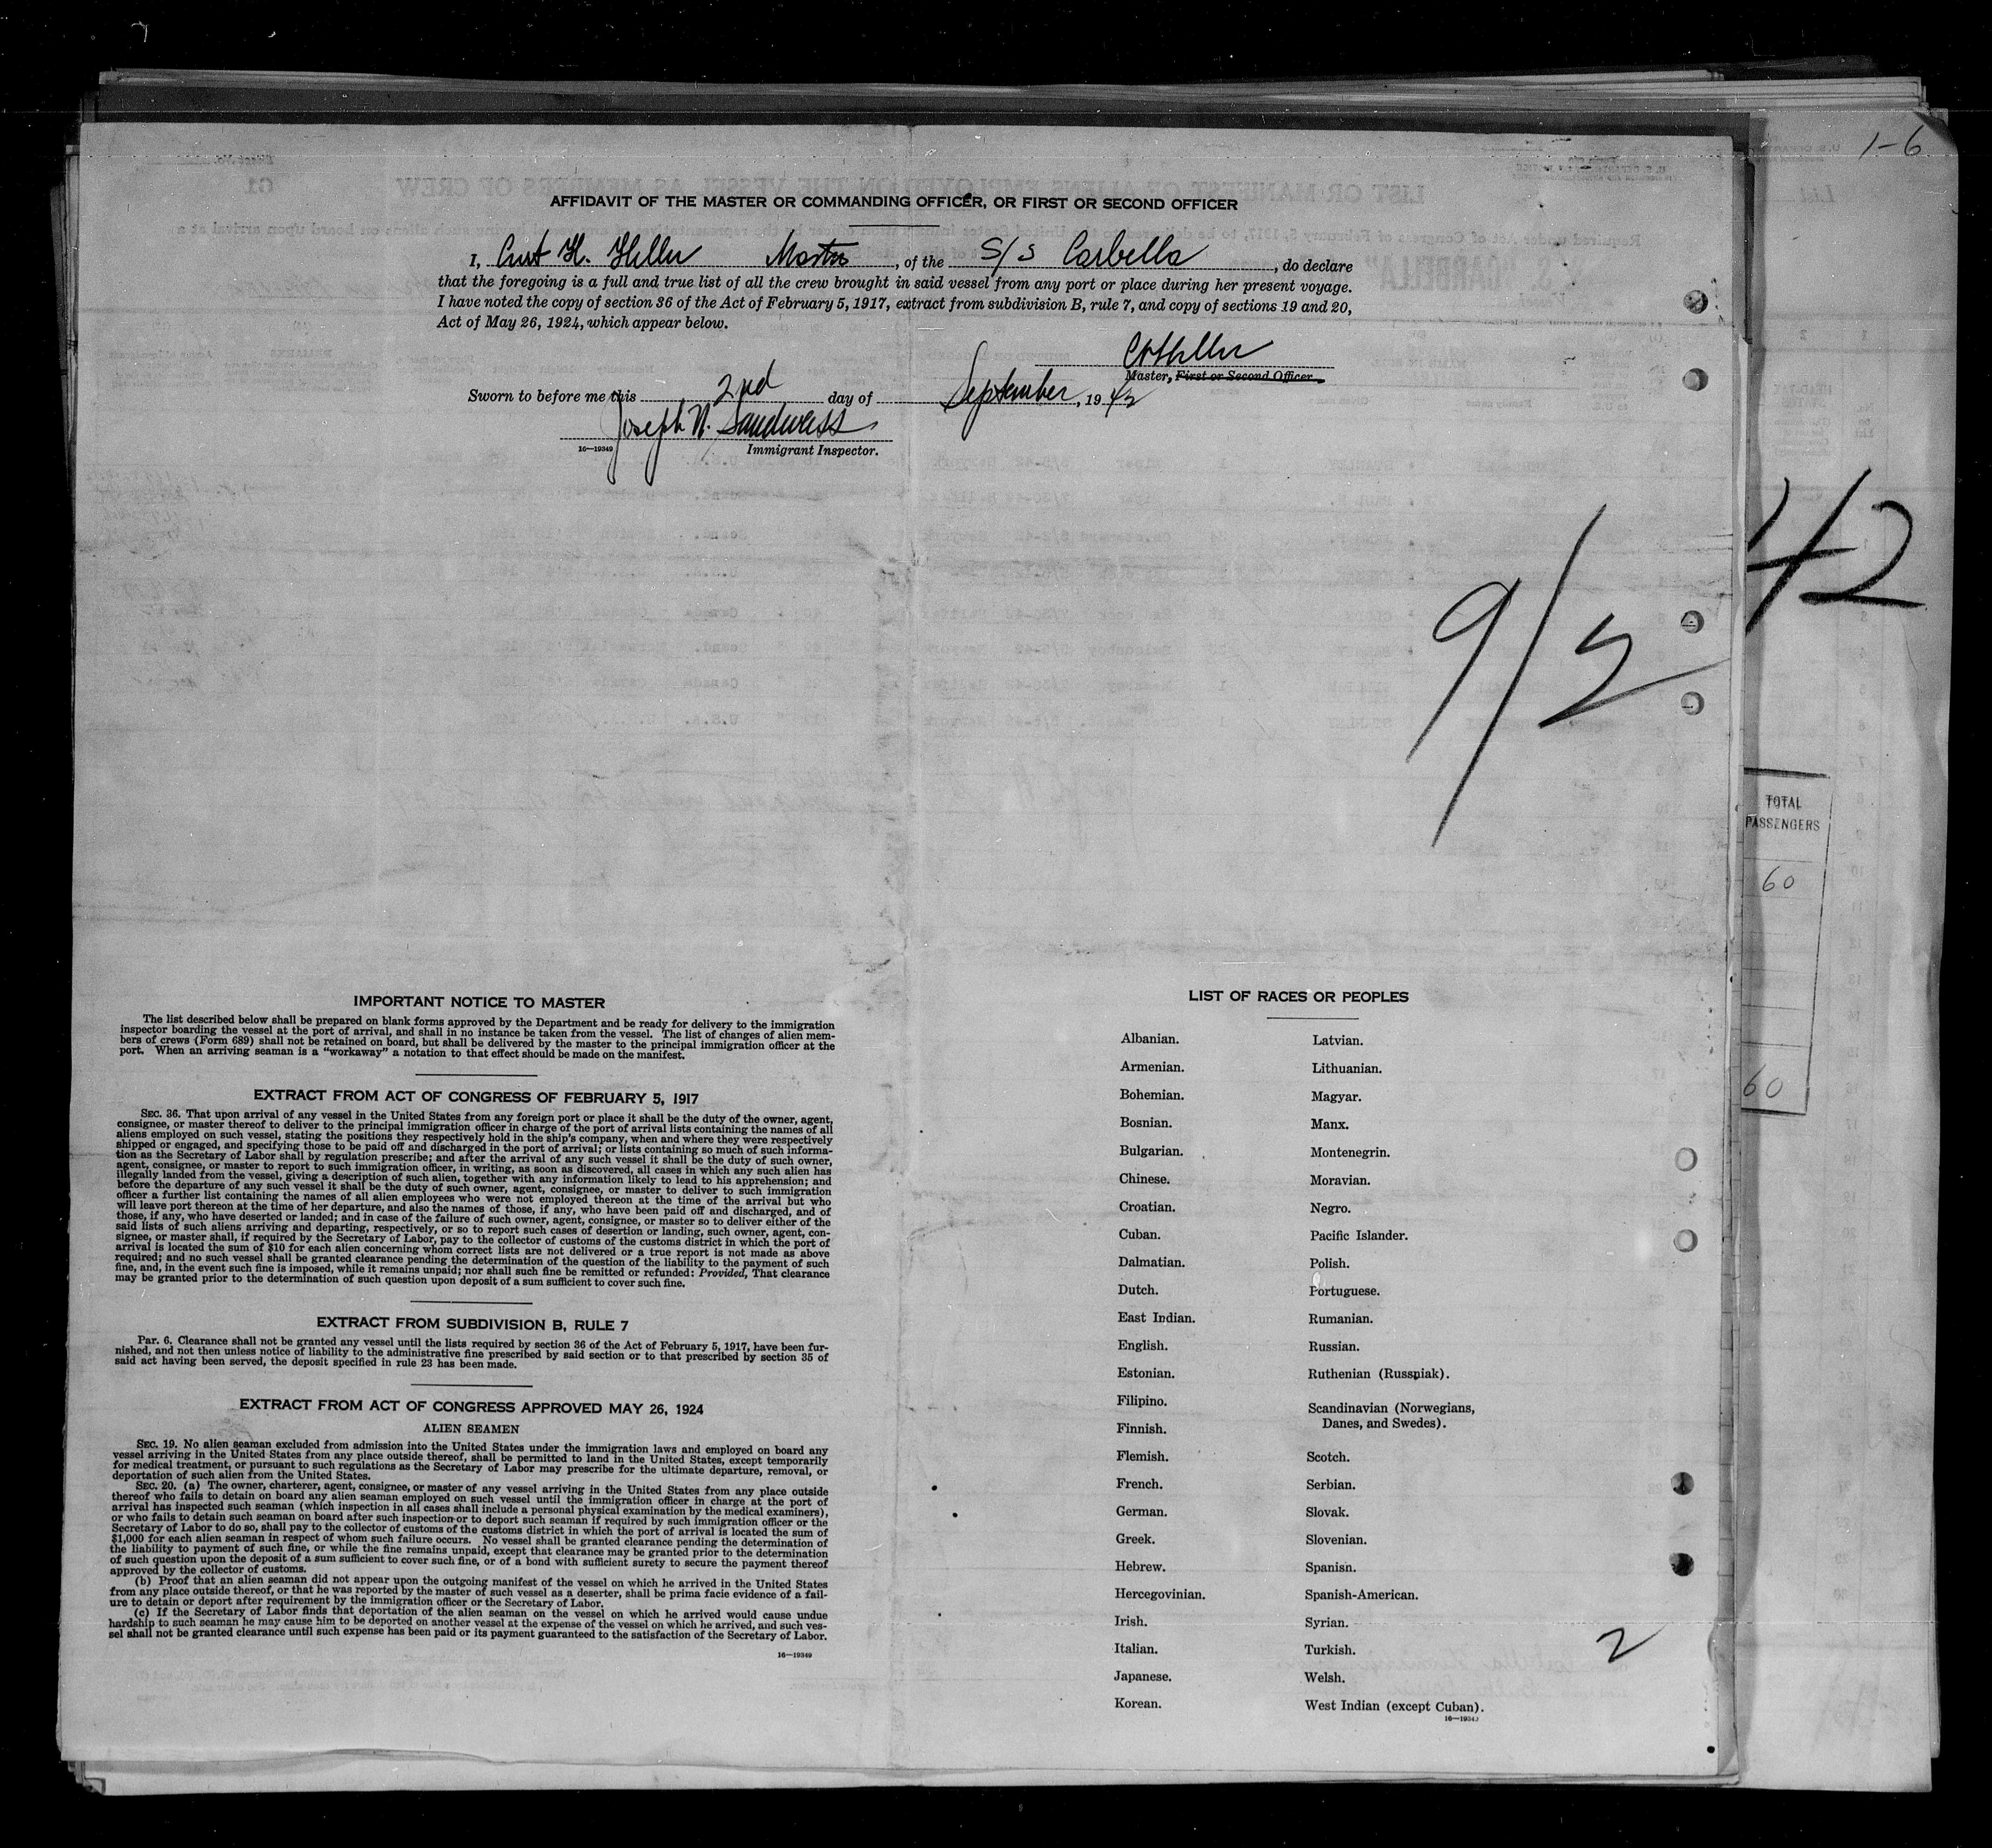 1-6
AFFIDAVIT OF THE MASTER OR COMMANDING OFFICER, OR FIRST OR SECOND OFFICER
I, Curt H. Heller Master, of the S/S Carbella, do declare
that the foregoing is a full and true list of all the crew brought in said vessel from any port or place during her present voyage.
I have noted the copy of section 36 of the Act of February 5, 1917, extract from subdivision B, rule 7, and copy of sections 19 and 20,
Act of May 26, 1924, which appear below.
CHHeller
Master, First or Second Officer.
Sworn to before me this 2nd day of September, 1942
Joseph N. Sandweiss
16—19349 Immigrant Inspector.
42
9/2
TOTAL
PASSENGERS
60
60
IMPORTANT NOTICE TO MASTER
The list described below shall be prepared on blank forms approved by the Department and be ready for delivery to the immigration
inspector boarding the vessel at the port of arrival, and shall in no instance be taken from the vessel. The list of changes of alien mem-
bers of crews (Form 689) shall not be retained on board, but shall be delivered by the master to the principal immigration officer at the
port. When an arriving seaman is a "workaway" a notation to that effect should be made on the manifest.
EXTRACT FROM ACT OF CONGRESS OF FEBRUARY 5, 1917
SEC. 36. That upon arrival of any vessel in the United States from any foreign port or place it shall be the duty of the owner, agent,
consignee, or master thereof to deliver to the principal immigration officer in charge of the port of arrival lists containing the names of all
aliens employed on such vessel, stating the positions they respectively hold in the ship's company, when and where they were respectively
shipped or engaged, and specifying those to be paid off and discharged in the port of arrival; or lists containing so much of such informa-
tion as the Secretary of Labor shall by regulation prescribe; and after the arrival of any such vessel it shall be the duty of such owner,
agent, consignee, or master to report to such immigration officer, in writing, as soon as discovered, all cases in which any such alien has
illegally landed from the vessel, giving a description of such alien, together with any information likely to lead to his apprehension; and
before the departure of any such vessel it shall be the duty of such owner, agent, consignee, or master to deliver to such immigration
officer a further list containing the names of all alien employees who were not employed thereon at the time of the arrival but who
will leave port thereon at the time of her departure, and also the names of those, if any, who have been paid off and discharged, and of
those, if any, who have deserted or landed; and in case of the failure of such owner, agent, consignee, or master so to deliver either of the
said lists of such aliens arriving and departing, respectively, or so to report such cases of desertion or landing, such owner, agent, con-
signee, or master shall, if required by the Secretary of Labor, pay to the collector of customs of the customs district in which the port of
arrival is located the sum of $10 for each alien concerning whom correct lists are not delivered or a true report is not made as above
required; and no such vessel shall be granted clearance pending the determination of the question of the liability to the payment of such
fine, and, in the event such fine is imposed, while it remains unpaid; nor shall such fine be remitted or refunded: Provided, That clearance
may be granted prior to the determination of such question upon deposit of a sum sufficient to cover such fine.
EXTRACT FROM SUBDIVISION B, RULE 7
Par. 6. Clearance shall not be granted any vessel until the lists required by section 36 of the Act of February 5, 1917, have been fur-
nished, and not then unless notice of liability to the administrative fine prescribed by said section or to that prescribed by section 35 of
said act having been served, the deposit specified in rule 23 has been made.
EXTRACT FROM ACT OF CONGRESS APPROVED MAY 26, 1924
ALIEN SEAMEN
SEC. 19. No alien seaman excluded from admission into the United States under the immigration laws and employed on board any
vessel arriving in the United States from any place outside thereof, shall be permitted to land in the United States, except temporarily
for medical treatment, or pursuant to such regulations as the Secretary of Labor may prescribe for the ultimate departure, removal, or
deportation of such alien from the United States.
SEC. 20. (a) The owner, charterer, agent, consignee, or master of any vessel arriving in the United States from any place outside
thereof who fails to detain on board any alien seaman employed on such vessel until the immigration officer in charge at the port of
arrival has inspected such seaman (which inspection in all cases shall include a personal physical examination by the medical examiners),
or who fails to detain such seaman on board after such inspection or to deport such seaman if required by such immigration officer or the
Secretary of Labor to do so, shall pay to the collector of customs of the customs district in which the port of arrival is located the sum of
$1,000 for each alien seaman in respect of whom such failure occurs. No vessel shall be granted clearance pending the determination of
the liability to payment of such fine, or while the fine remains unpaid, except that clearance may be granted prior to the determination
of such question upon the deposit of a sum sufficient to cover such fine, or of a bond with sufficient surety to secure the payment thereof
approved by the collector of customs.
(b) Proof that an alien seaman did not appear upon the outgoing manifest of the vessel on which he arrived in the United States
from any place outside thereof, or that he was reported by the master of such vessel as a deserter, shall be prima facie evidence of a fail-
ure to detain or deport after requirement by the immigration officer or the Secretary of Labor.
(c) If the Secretary of Labor finds that deportation of the alien seaman on the vessel on which he arrived would cause undue
hardship to such seaman he may cause him to be deported on another vessel at the expense of the vessel on which he arrived, and such ves-
sel shall not be granted clearance until such expense has been paid or its payment guaranteed to the satisfaction of the Secretary of Labor.
16—19349
LIST OF RACES OR PEOPLES
Albanian.
Armenian.
Bohemian.
Bosnian.
Bulgarian.
Chinese.
Croatian.
Cuban.
Dalmatian.
Dutch.
East Indian.
English.
Estonian.
Filipino.
Finnish.
Flemish.
French.
German.
Greek.
Hebrew.
Hercegovinian.
Irish.
Italian.
Japanese.
Korean.
Latvian.
Lithuanian.
Magyar.
Manx.
Montenegrin.
Moravian.
Negro.
Pacific Islander.
Polish.
Portuguese.
Rumanian.
Russian.
Ruthenian (Russniak).
Scandinavian (Norwegians,
Danes, and Swedes).
Scotch.
Serbian.
Slovak.
Slovenian.
Spanish.
Spanish-American.
Syrian.
Turkish.
Welsh.
West Indian (except Cuban).
16—19349
2